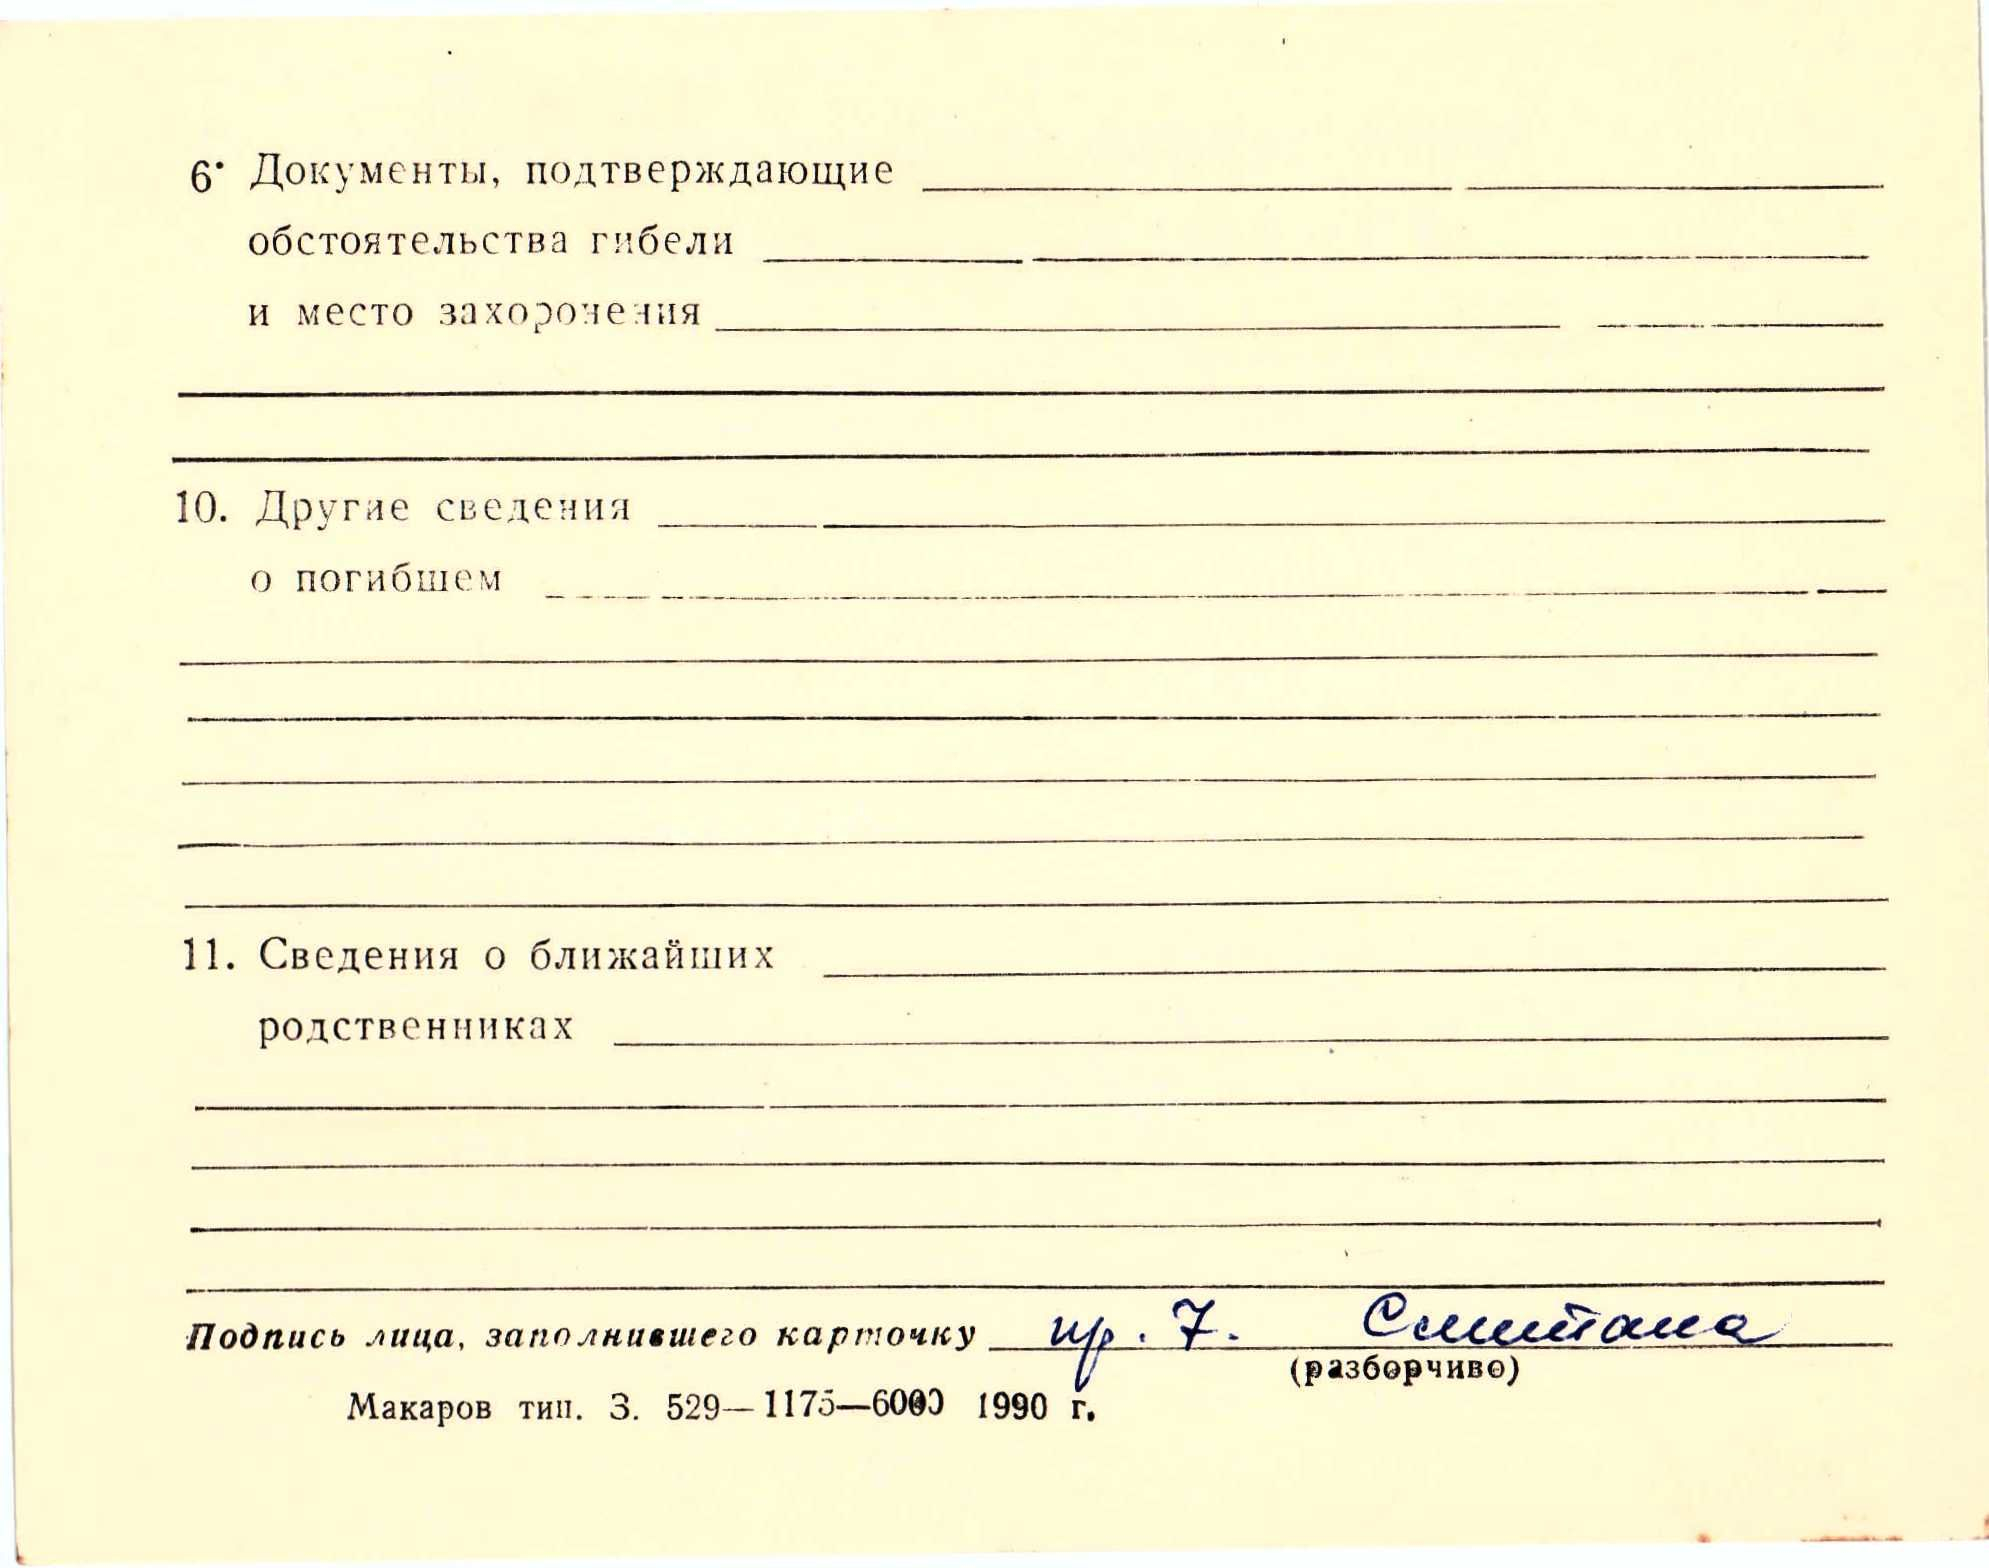 6. Документы, подтверждающие
обстоятельства гибели
и место захоронения
10. Другие сведения
о погибшем
11. Сведения о ближайших
родственниках
Подпись лица, заполнившего карточку пр. 7. Сметана
(разборчиво)
Макаров тип. З. 529—1175—6000 1990 г.